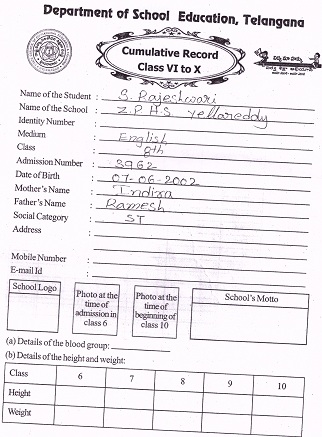 Department of School Education, Telangana
Cumulative Record
Class VI to X
Name of the Student : S. Rajeshwari
Name of the School : Z.P.H.S Yellareddy
Identity Number :
Medium : English
Class : 8th
Admission Number : 3962
Date of Birth : 07-06-2002
Mother's Name : Indira
Father's Name : Ramesh
Social Category : ST
Address :
Mobile Number :
E-mail Id :
School Logo
Photo at the time of admission in class 6
Photo at the time of beginning of class 10
School's Motto
(a) Details of the blood group:
(b) Details of the height and weight:
Class 6 7 8 9 10
Height
Weight